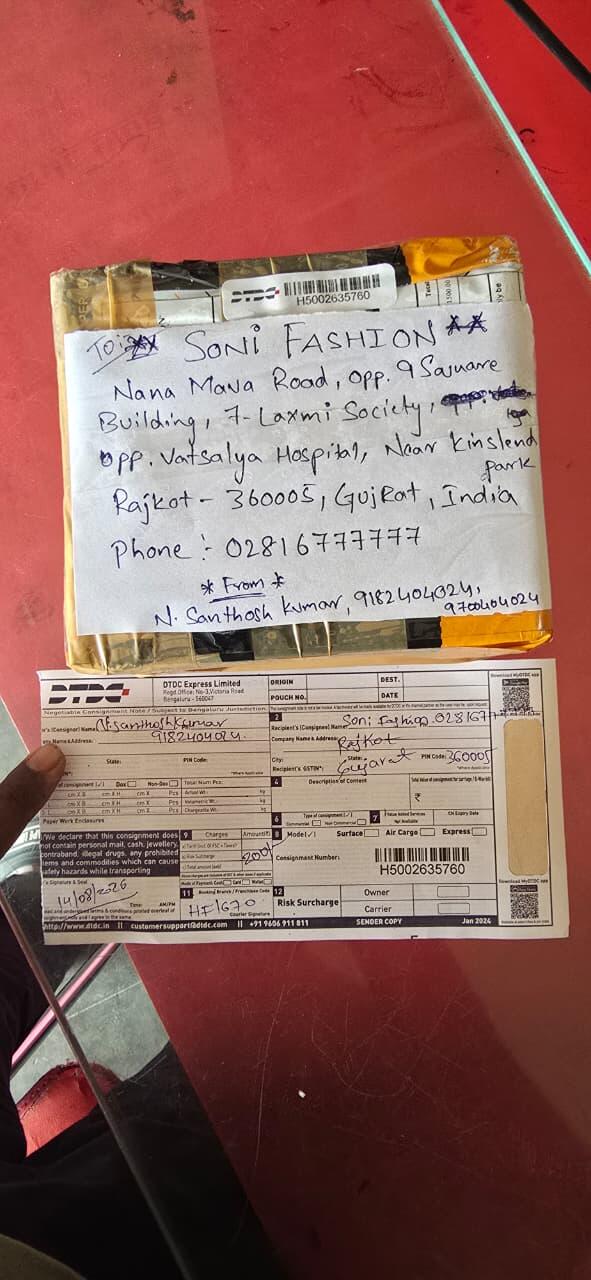 DTDC
H5002635760
Total
1500.00
ly be
TO:
SONI FASHION
Nana Mava Road, opp. 9 Square
Building, 7-Laxmi Society,
opp. Vatsalya Hospital, Near Kinslend
park
Rajkot - 360005, GujRat, India
Phone :- 02816777777
* From *
N. Santhosh Kumar, 9182404024,
9700404024
DTDC
DTDC Express Limited
Regd.Office: No-3,Victoria Road
Bengaluru - 560047
ORIGIN
DEST.
POUCH NO.
DATE
Download MyDTDC App
Negotiable Consignment Note / Subject to Bengaluru Jurisdiction.
's (Consignor) Name: N. Santhosh Kumar
any Name & Address: 9182404024.
State:
PIN Code:
2
Recipient's (Consignee) Name: Soni Fashion 028167
Company Name & Address: Rajkot
City:
State: Gujarat
PIN Code: 360005
Recipient's GSTIN*:
*Where Applicable
of consignment (✓)
Dox
Non-Dox
cm X B
cm X H
cm X
Pcs
cm X B
cm X H
cm X
Pcs
cm X B
cm X H
cm X
Pcs
Total Num Pcs:
Actual Wt.:
kg
Volumetric Wt.:
kg
Chargeable Wt.:
kg
4
Description of Content
Total Value of consignment for carriage
₹
Paper Work Enclosures
6
Type of consignment (✓)
Commercial
Non Commercial
7
Value Added Services
Not Available
EW Expiry Date
"We declare that this consignment does
not contain personal mail, cash, jewellery,
contraband, illegal drugs, any prohibited
items and commodities which can cause
safety hazards while transporting
9
Charges
Amount(₹)
Risk Surcharge
200/-
8
Mode(✓)
Surface
Air Cargo
Express
Consignment Number:
H5002635760
's Signature & Seal
14/08/2026
Time:
AM/PM
Mode of Payment:
Cash
Card
Wallet
11
Booking Branch / Franchisee Code
HF1670
Courier Signature
12
Risk Surcharge
Owner
Carrier
Download MyDTDC App
http://www.dtdc.in || customersupport@dtdc.com || +91 9606 911 811
SENDER COPY
Jan 2024